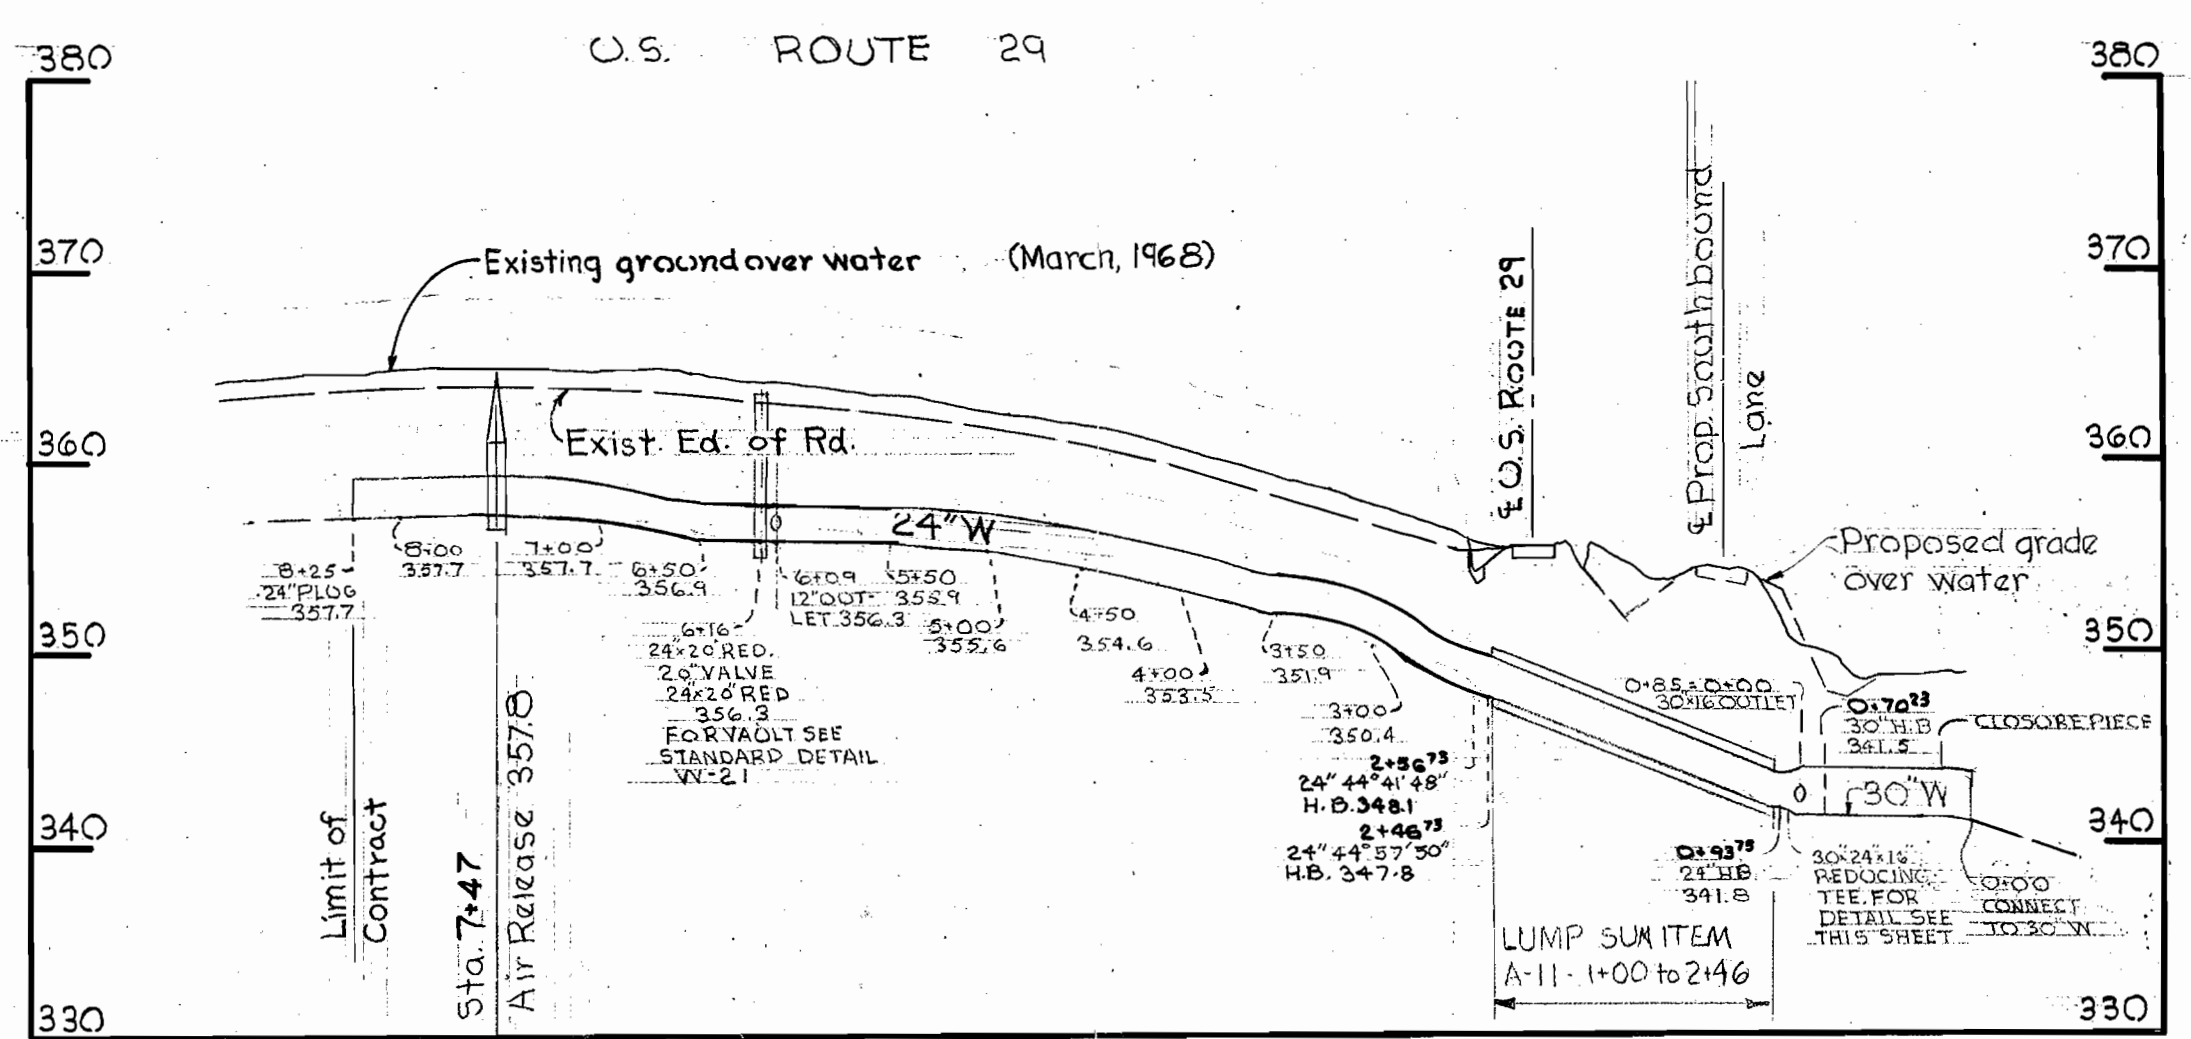 U.S. ROUTE 29
380
380
370
370
360
360
350
350
340
340
330
330
Existing ground over water (March, 1968)
Exist. Ed. of Rd.
24"W
℄ U.S. ROUTE 29
℄ Prop. Southbound
Lane
Proposed grade
over water
8+25
24" PLUG
357.7
8+00
357.7
7+00
357.7
6+50
356.9
6+16
24x20 RED.
20" VALVE
24x20 RED
356.3
FOR VAULT SEE
STANDARD DETAIL
W-21
6+09
12" OUT-
LET 356.3
5+50
355.9
5+00
355.6
4+50
354.6
4+00
353.5
3+50
351.9
3+00
350.4
2+56⁷³
24" 44°41'48"
H.B. 348.1
2+46⁷³
24" 44°57'50"
H.B. 347.8
0+85=0+00
30x16 OUTLET
0+70²³
30" H.B
341.5
CLOSURE PIECE
30"W
0+93⁷⁵
24" HB
341.8
30"x24"x16"
REDUCING
TEE. FOR
DETAIL SEE
THIS SHEET
0+00
CONNECT
TO 30" W
LUMP SUM ITEM
A-11 - 1+00 to 2+46
Limit of
Contract
Sta. 7+47
Air Release 357.8